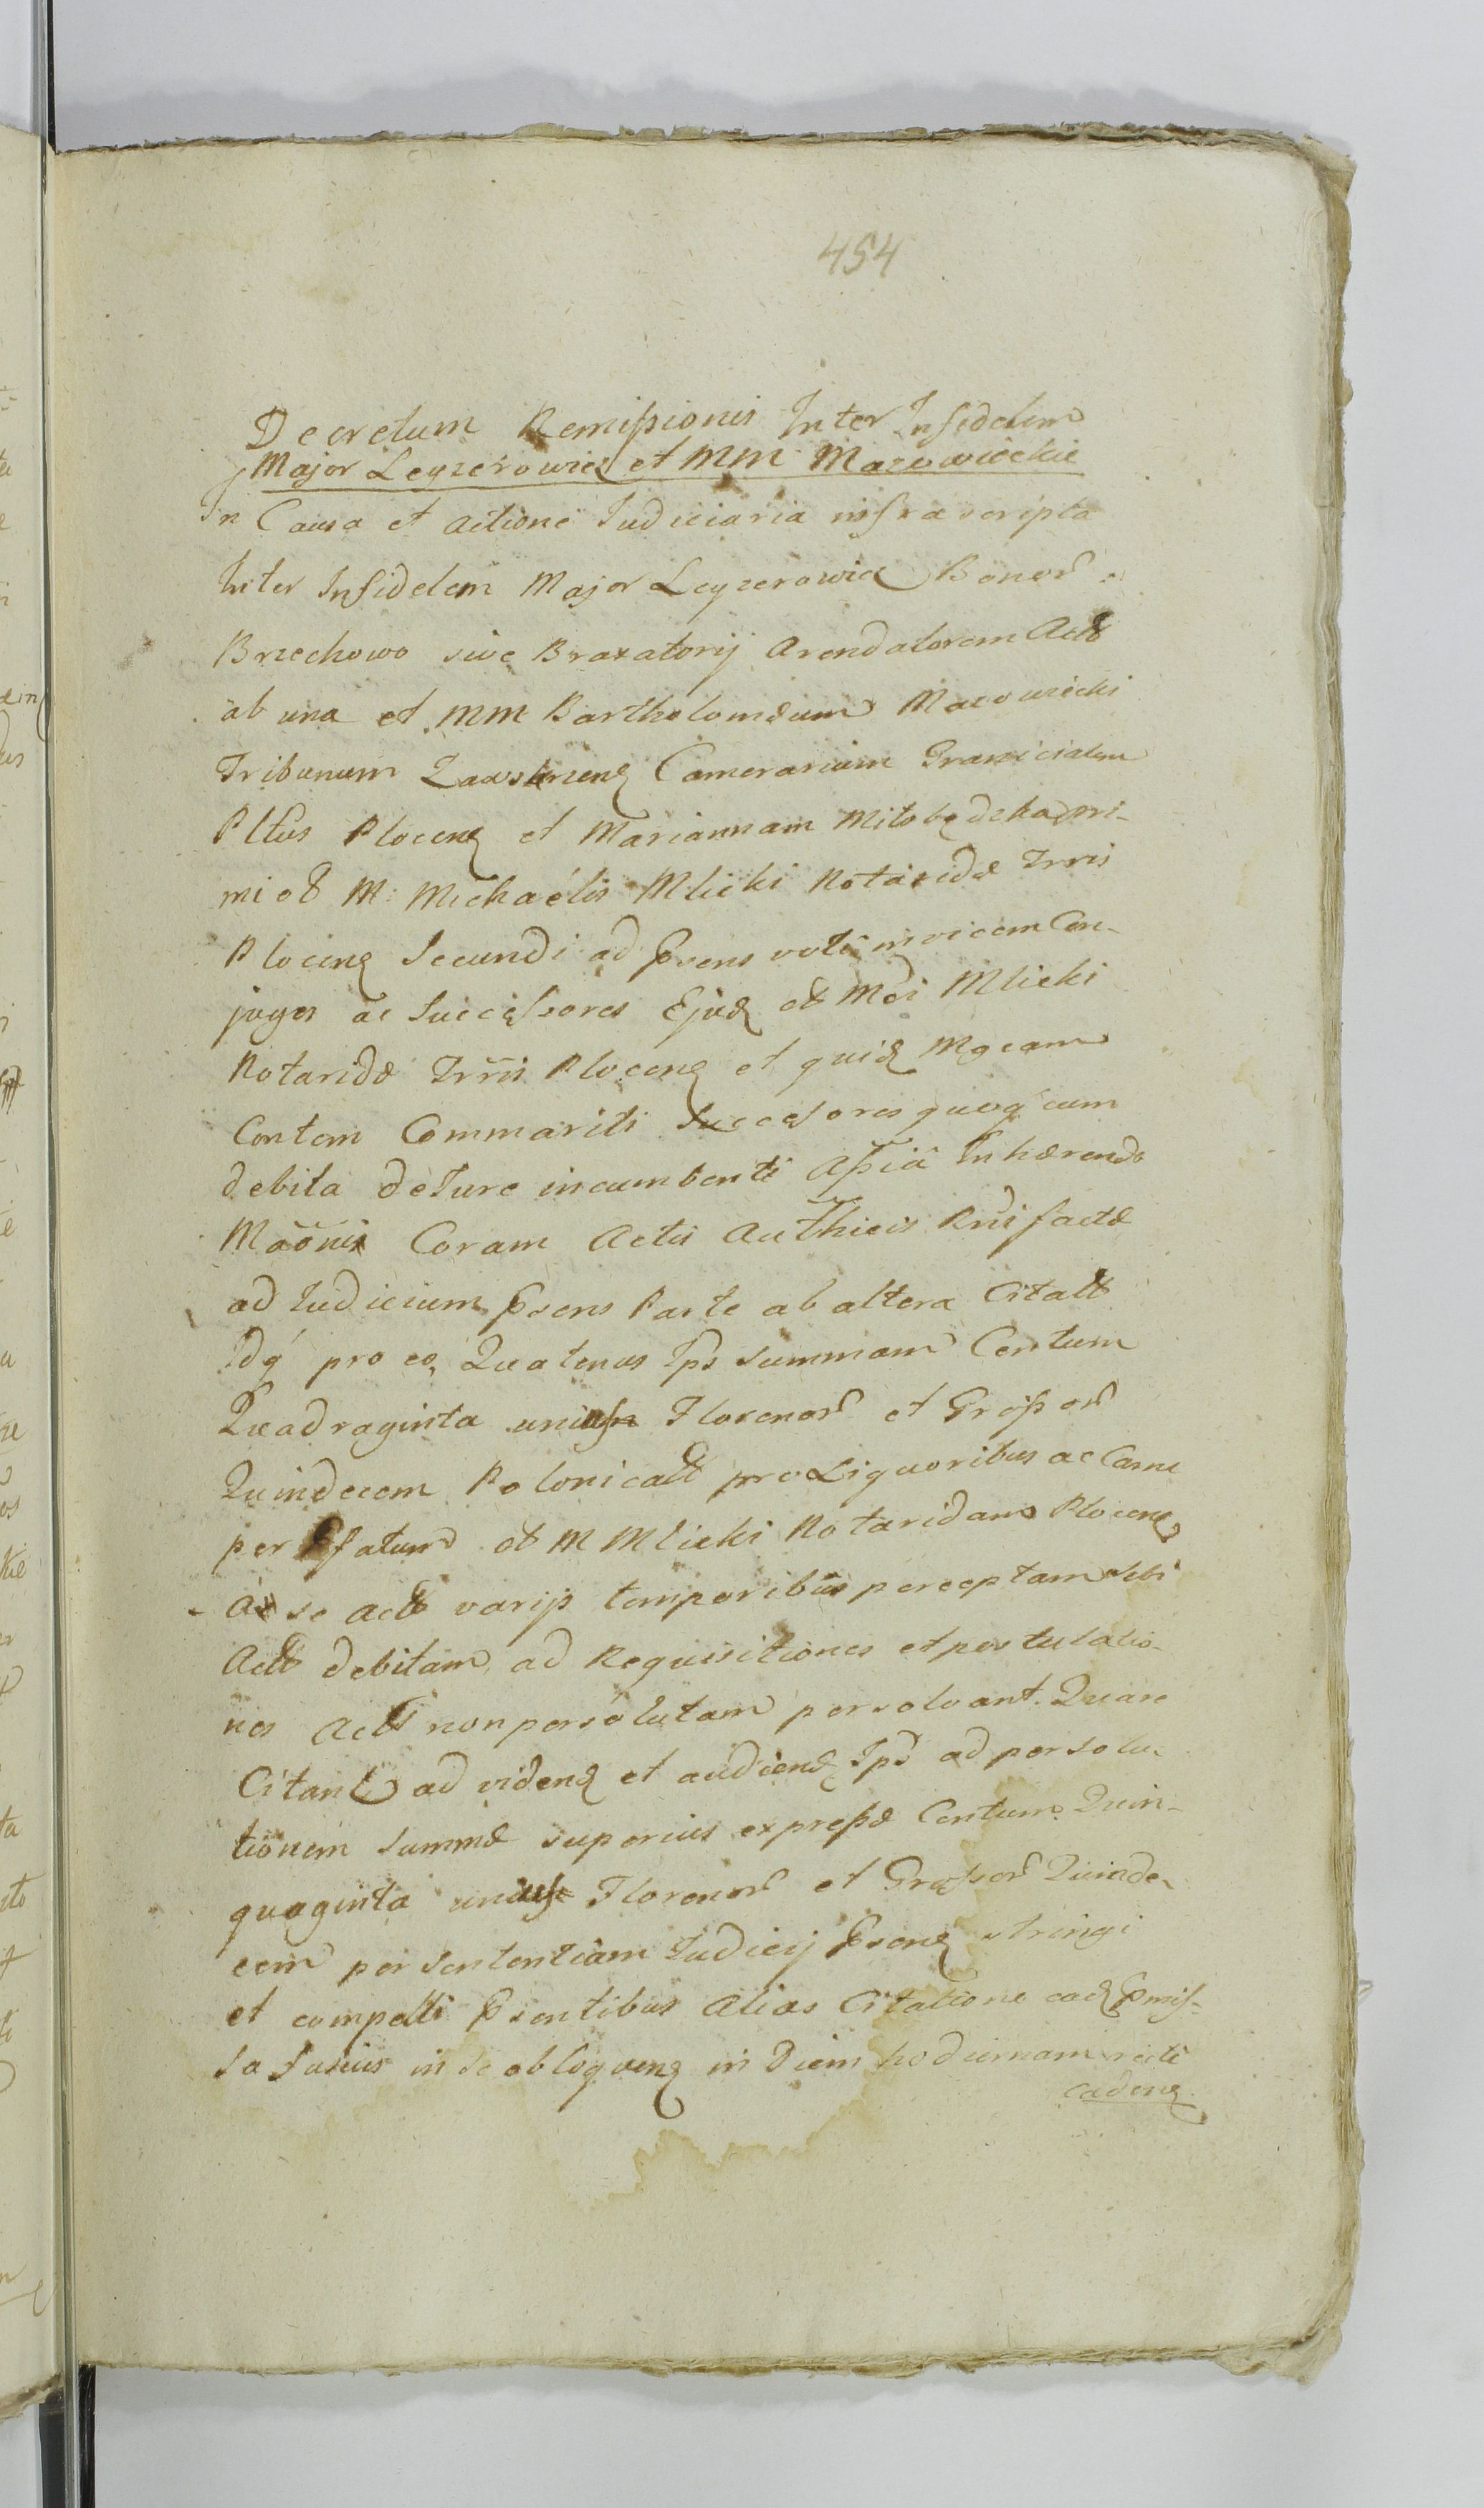 454
Decretum Remissionis Inter Infidelem
Major Leyzerowicz et MM Mazowieckie
In Causa et actione Judiciaria infrascripta
Inter Infidelem Major Leyzerowicz Bonor
Brzechowo sive Braxatorij Arendatorem Act
ab una et MM Bartholomæum Mazowiecki
Tribunum Zawskrzen Camerarium Granicialem
Pltus Plocen et Mariannam Milobędzka pri-
mi M: Michaélis Mlicki Notaridæ Trris
Plocen Secundi ad Prsens voti invicem Con-
juges ac Successores Ejusd et Mci Mlicki
Notaridæ Trris Plocen et quid Mgcam
Contem Commariti Successores quoq cum
debita de Jure incumbenti assia Inhærendo
Maonis Coram Actis Authicis Prsi factæ
ad Judicium Prsens Parte ab altera Citatt
Idq pro eo, Quatenus Ips summam Centum
Quadraginta unius Florenor et Grossor
Quindecem Polonicall pro Liquoribus ac Carne
per Pfatum et M Mlicki Notaridam Plocen
a se act varijs temporibus perceptam sibi
Act debitam ad Requisitiones et postulatio-
nes Act non persolutam persolvant. Quare
Citant ad viden et audiend Ips ad persolu-
tionem summæ superius expressæ Centum Quin-
quaginta unius Florenor et Grossor Quinde-
cem per sententiam Judicij Prsen stringi
et compelli Prsentibus alias Citatione ead Pmis-
sa fusius in se obloquen in Diem hodiernam recte
caden